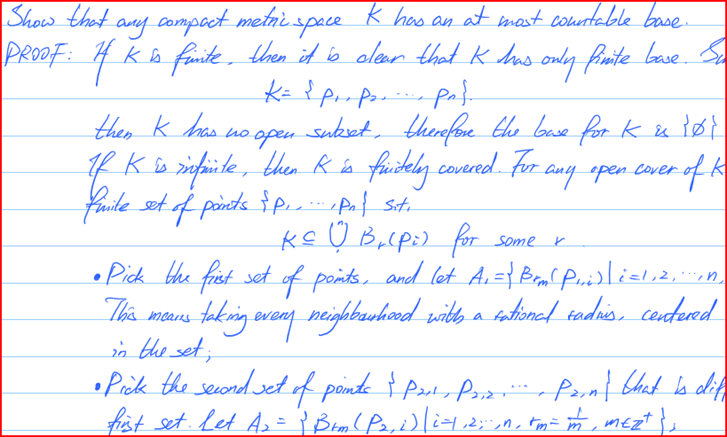 Show that any compact metric space K has an at most countable base.
PROOF: If K is finite, then it is clear that K has only finite base. Su
K= { p₁, p₂, ..., pₙ}.
then K has no open subset, therefore the base for K is {∅}
If K is infinite, then K is finitely covered. For any open cover of K
finite set of points {p₁, ..., pₙ} s.t.
K ⊆ ⋃ Bᵣ(pᵢ) for some r
• Pick the first set of points, and let A₁={ B_{rm}(P_{1,i}) | i=1,2,...,n,
This means taking every neighbourhood with a rational radius, centered
in the set;
• Pick the second set of points { P_{2,1}, P_{2,2}, ..., P_{2,n} } that is dif
first set. Let A₂ = { B_{rm}(P_{2,i}) | i=1,2,...,n, r_m = 1/m, m∈ℤ⁺ };